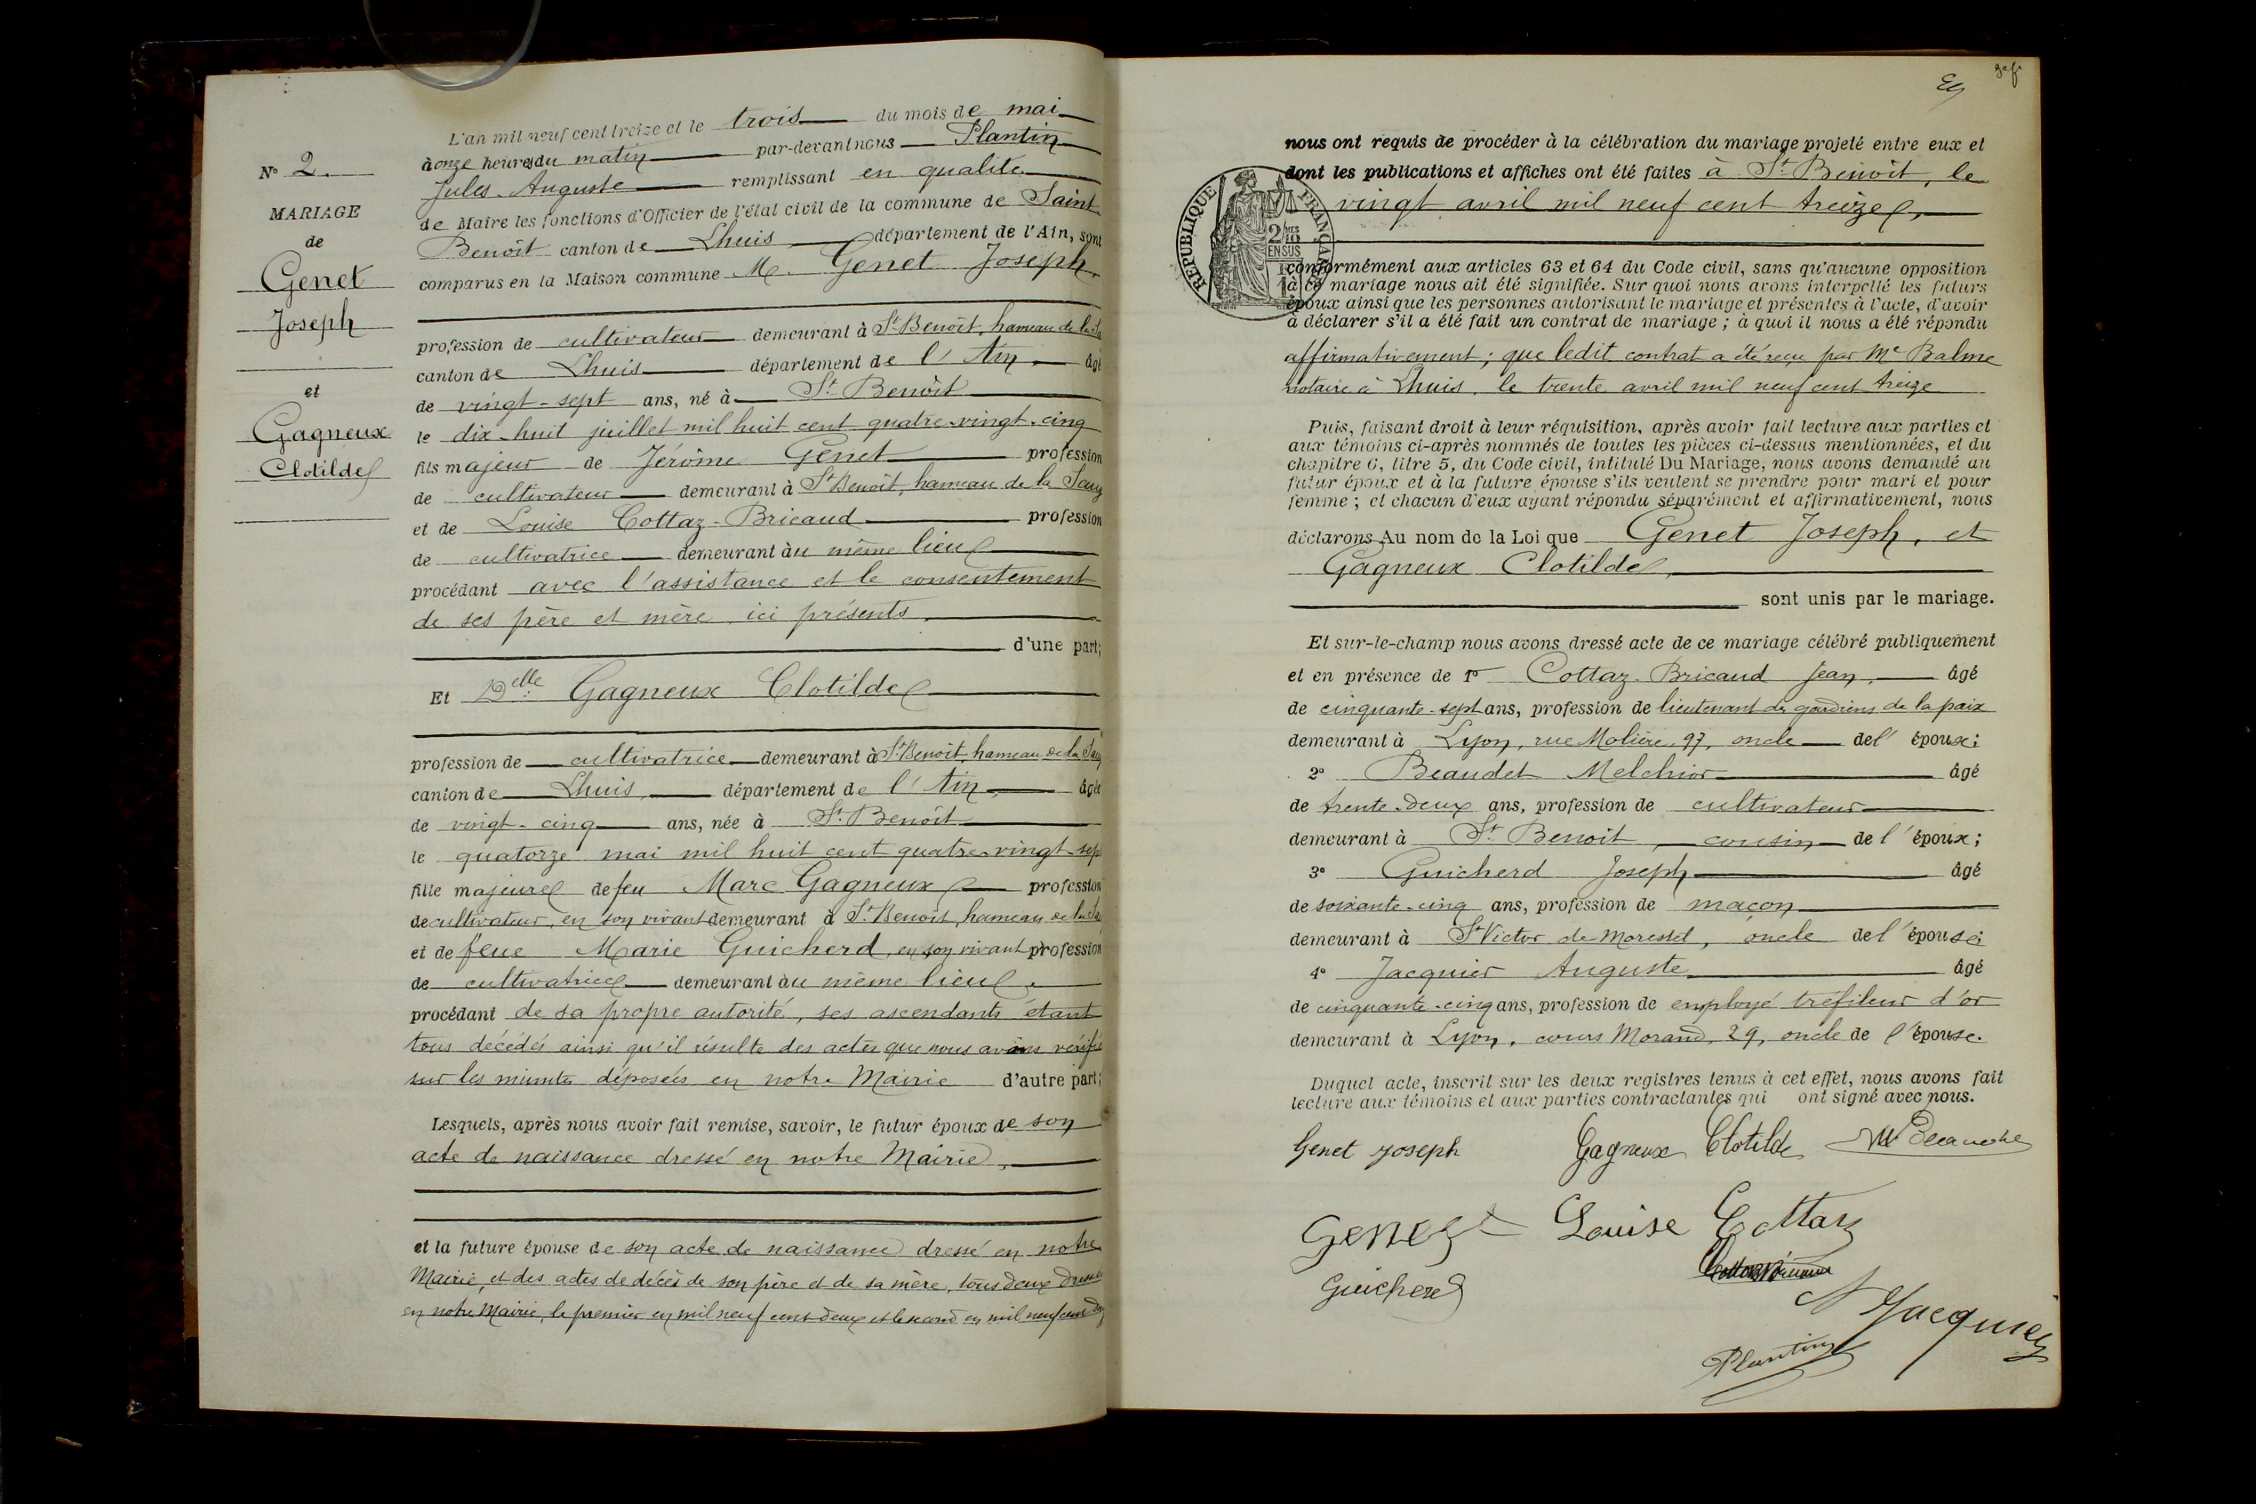 N° 2.
MARIAGE
de
Genet
Joseph
et
Gagneux
Clotilde
L'an mil neuf cent treize et le trois du mois de mai
à onze heures du matin par-devant nous Plantin
Jules Auguste remplissant en qualité
de Maire les fonctions d'Officier de l'état civil de la commune de Saint
Benoît canton de Lhuis département de l'Ain, sont
comparus en la Maison commune M. Genet Joseph,
profession de cultivateur demeurant à St Benoît, hameau de la
canton de Lhuis département de l'Ain, âgé
de vingt-sept ans, né à St Benoît
le dix-huit juillet mil huit cent quatre-vingt-cinq
fils majeur de Jérôme Genet profession
de cultivateur demeurant à St Benoît, hameau de la Sauge
et de Louise Cottaz-Bricaud profession
de cultivatrice demeurant au même lieu
procédant avec l'assistance et le consentement
de ses père et mère ici présents,
d'une part;
Et Delle Gagneux Clotilde
profession de cultivatrice demeurant à St Benoît, hameau de la
canton de Lhuis, département de l'Ain, âgée
de vingt-cinq ans, née à St Benoît
le quatorze mai mil huit cent quatre-vingt-sept
fille majeure de feu Marc Gagneux profession
de cultivateur, en son vivant demeurant à St Benoît, hameau de la
et de feue Marie Guicherd, en son vivant profession
de cultivatrice demeurant au même lieu,
procédant de sa propre autorité, ses ascendants étant
tous décédés ainsi qu'il résulte des actes que nous avons vérifié
sur les minutes déposées en notre Mairie d'autre part;
Lesquels, après nous avoir fait remise, savoir, le futur époux de son
acte de naissance dressé en notre Mairie,
et la future épouse de son acte de naissance dressé en notre
Mairie, et des actes de décès de son père et de sa mère, tous deux dressés
en notre Mairie, le premier en mil neuf cent deux et le second en mil neuf cent
nous ont requis de procéder à la célébration du mariage projeté entre eux et
dont les publications et affiches ont été faites à St Benoît, le
vingt avril mil neuf cent treize,
REPUBLIQUE FRANÇAISE
2/10 EN SUS
conformément aux articles 63 et 64 du Code civil, sans qu'aucune opposition
à ce mariage nous ait été signifiée. Sur quoi nous avons interpellé les futurs
époux ainsi que les personnes autorisant le mariage et présentes à l'acte, d'avoir
à déclarer s'il a été fait un contrat de mariage; à quoi il nous a été répondu
affirmativement; que ledit contrat a été reçu par Me Balme
notaire à Lhuis, le trente avril mil neuf cent treize
Puis, faisant droit à leur réquisition, après avoir fait lecture aux parties et
aux témoins ci-après nommés de toutes les pièces ci-dessus mentionnées, et du
chapitre 6, titre 5, du Code civil, intitulé Du Mariage, nous avons demandé au
futur époux et à la future épouse s'ils veulent se prendre pour mari et pour
femme; et chacun d'eux ayant répondu séparément et affirmativement, nous
déclarons Au nom de la Loi que Genet Joseph, et
Gagneux Clotilde,
sont unis par le mariage.
Et sur-le-champ nous avons dressé acte de ce mariage célébré publiquement
et en présence de 1° Cottaz-Bricaud Jean, âgé
de cinquante-sept ans, profession de lieutenant des gardiens de la paix
demeurant à Lyon, rue Molière, 97, oncle de l'époux;
2° Beaudet Melchior âgé
de trente-deux ans, profession de cultivateur
demeurant à St Benoît, cousin de l'époux;
3° Guicherd Joseph âgé
de soixante-cinq ans, profession de maçon
demeurant à St Victor de Morestel, oncle de l'épouse;
4° Jacquier Auguste âgé
de cinquante-cinq ans, profession de employé tréfileur d'or
demeurant à Lyon, cours Morand, 29, oncle de l'épouse.
Duquel acte, inscrit sur les deux registres tenus à cet effet, nous avons fait
lecture aux témoins et aux parties contractantes qui ont signé avec nous.
Genet Joseph Gagneux Clotilde
Genet Louise Cottaz
Guicherd
Jacquier
Plantin